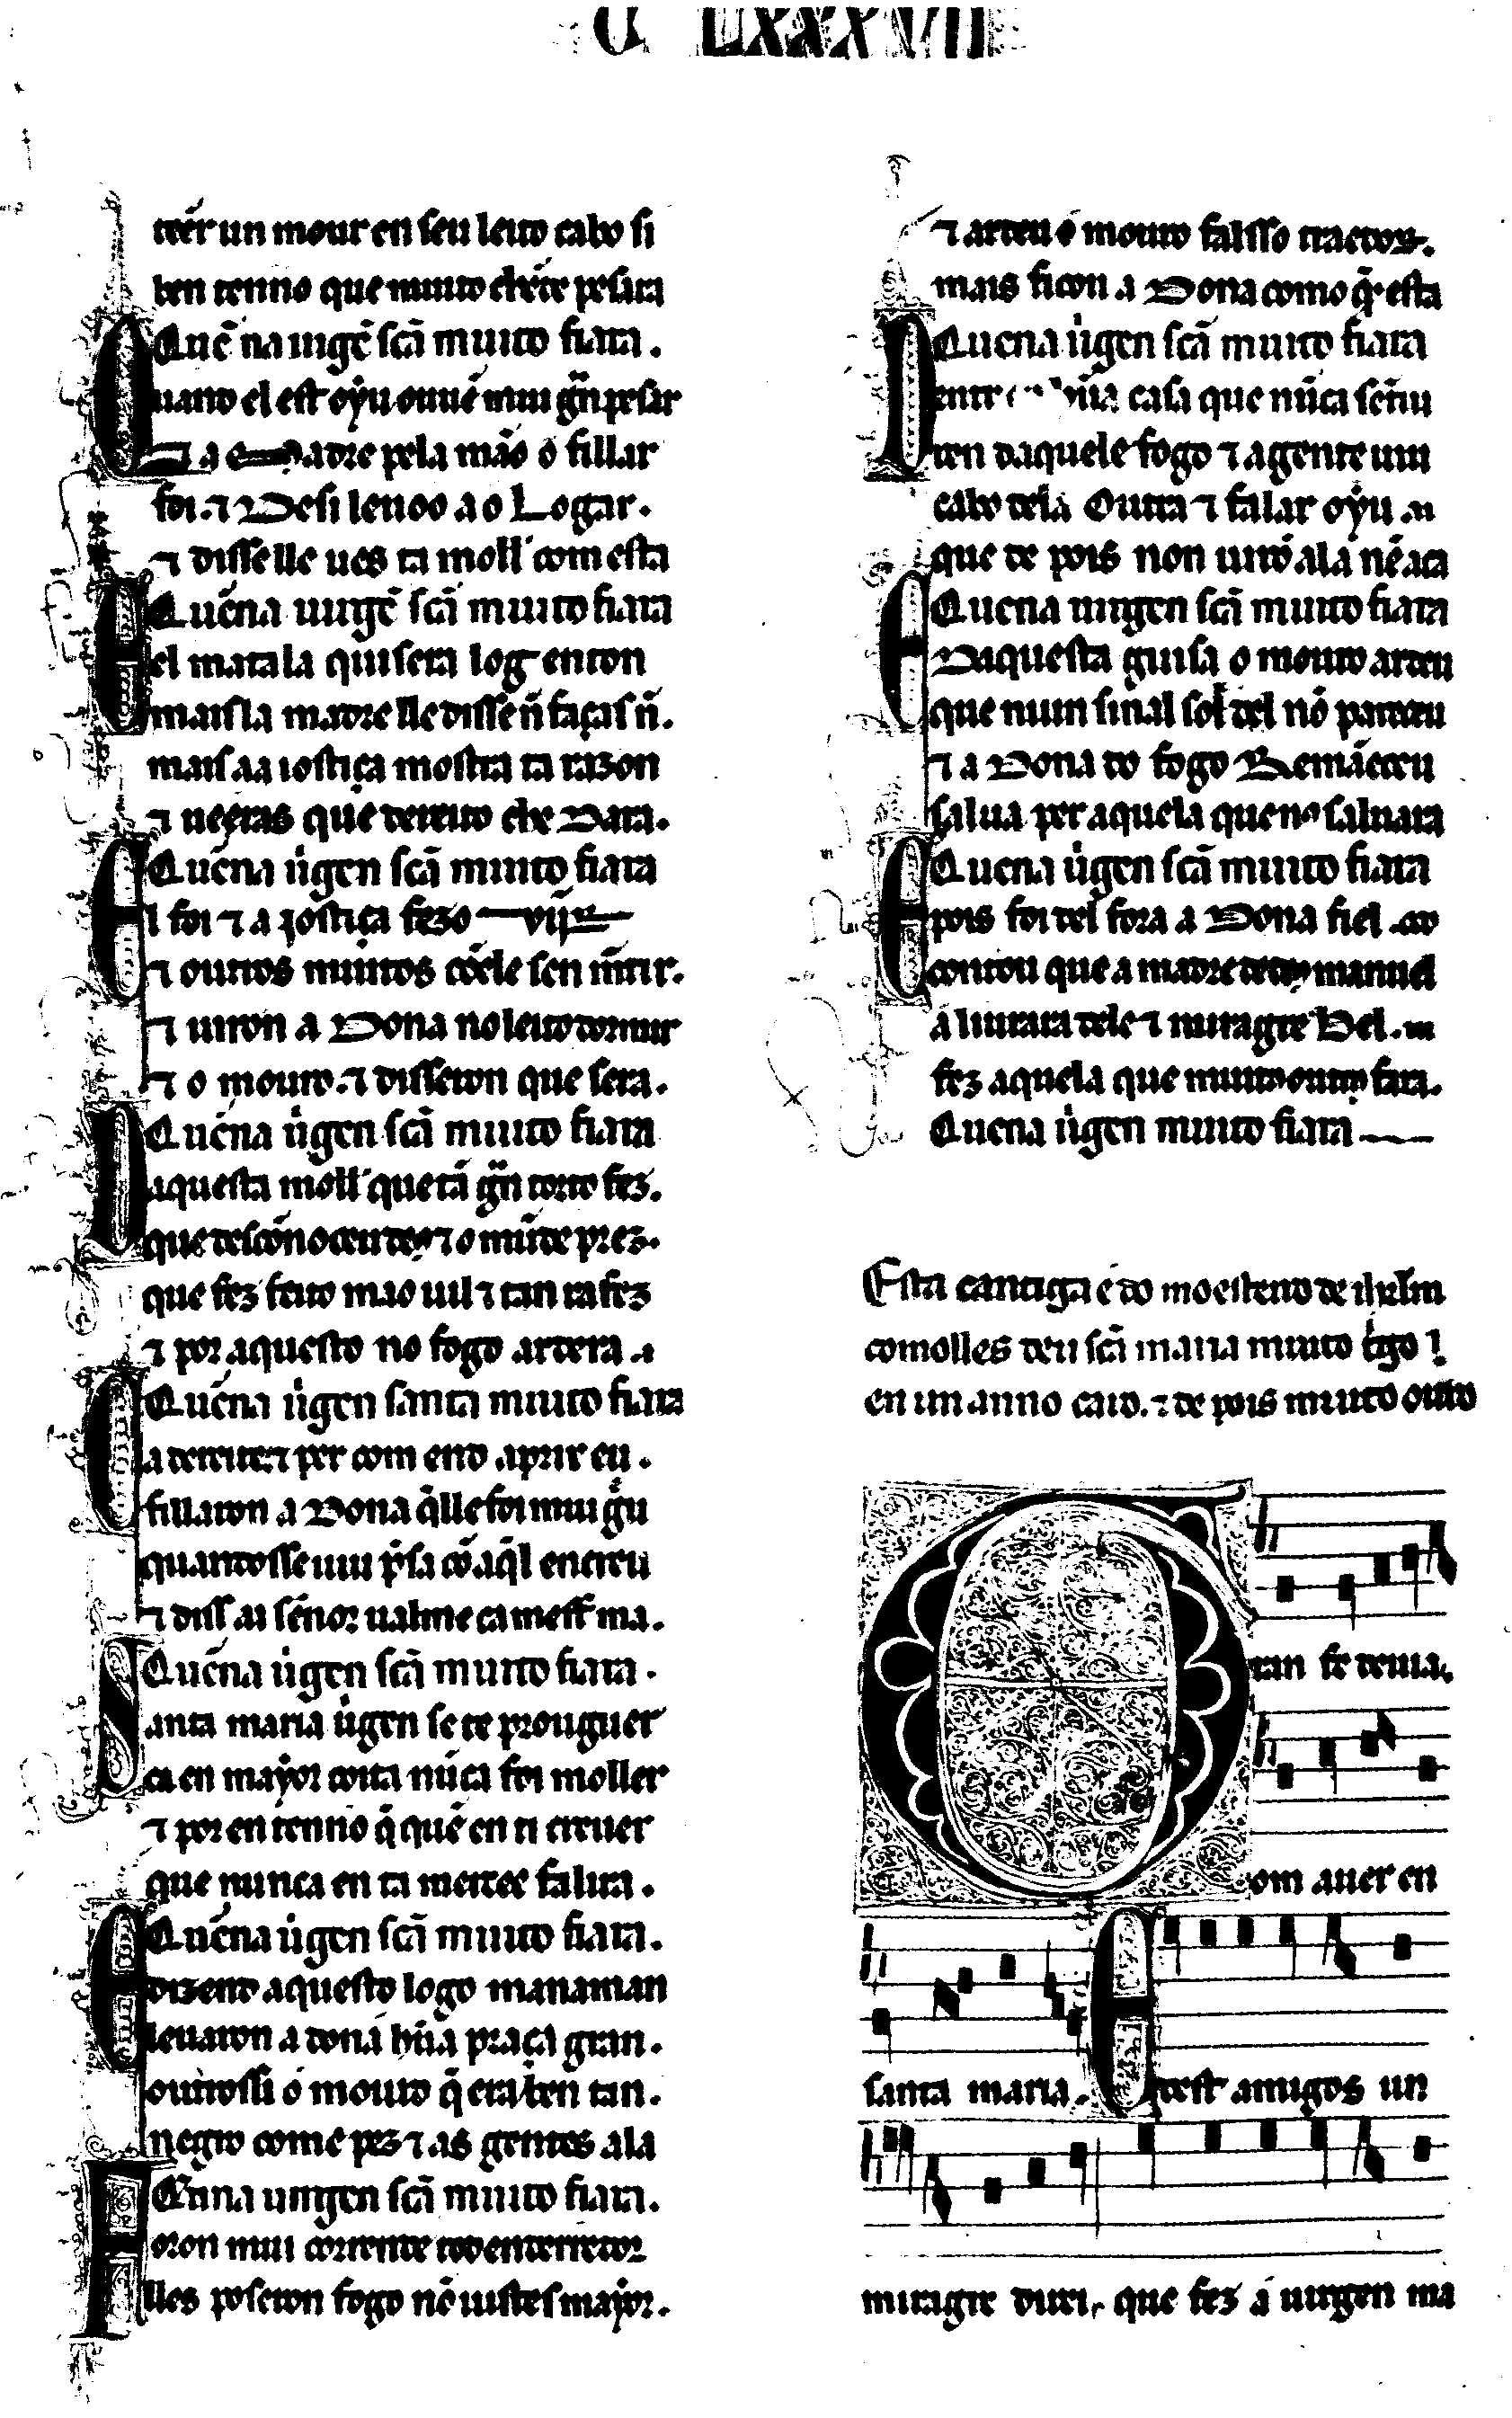 C LXXXVII
iazer un mour en seu leito cabo si
ben tenno que muito ch̃ de pesara
Quẽ na uirgẽ scã muito fiara.
Quand el est oyu ouuẽ mui grã pesar
⁊ a madre pela mão o fillar
foi. ⁊ desi leuoo ao logar.
⁊ disselle ues ta moll' com esta
Quẽna uirgẽ scã muito fiara
El matala quisera log enton
mais la madre lle disse nõ faças nõ.
mais aa iostiça mostra ta razon
⁊ ueeras que dereito che dara.
Quẽna uirgen scã muito fiara
El foi ⁊ a iostiça fezo uĩir
⁊ outros muitos cõele sen mẽtir.
⁊ uiron a dona no leito dormir
⁊ o mouro. ⁊ disseron que sera.
Quẽna uirgen scã muito fiara
Daquesta moll' que tã grã torto fez.
que descõnoceu deus ⁊ o mũd e prez.
que fez feito mao uil ⁊ tan rafez
⁊ por aquesto no fogo ardera.
Quẽna uirgen santa muito fiara
Ca dereit é ⁊ per com end apris eu.
fillaron a dona q̃lle foi mui greu
quandosse uiu p̃sa cõ aq̃l encreu
⁊ diss ai sẽnor ualme ca mest ma.
Quẽna uirgen scã muito fiara.
Santa maria uirgen se te prouguer
ca en mayor coita nũca foi moller
⁊ por en tenno q̃ quẽ en ti creuer
que nunca en ta mercee falira.
Quẽna uirgen scã muito fiara.
E dizend aquesto logo manaman
leuaron a dona hũa praça gran.
outrossi o mouro q̃ era ben tan.
negro come pez ⁊ as gentes ala
Enna uirgen scã muito fiara.
Foron mui correnté tod en derredor
lles poseron fogo nõ uistes mayor.
⁊ ardeu o mouro falsso traedor.
mais ficou a dona como q̃ esta
Quena uirgen scã muito fiara
Dentr en hũa casa que nũca sẽtiu
ren daquele fogo ⁊ a gente uiu
cabo dela outra ⁊ falar oyu
que depois non uirõ ala nẽ aca
Quena uirgen scã muito fiara
E daquesta guisa o mouro ardeu
que niun sinal sol del nõ pareceu
⁊ a dona do fogo remãeceu
salua per aquela que nos saluara
Quena uirgen scã muito fiara
E pois foi del fora a dona fiel
contou que a madre de manuel
a liurara dele ⁊ miragre bel
fez aquela que muit outro fara.
Quena uirgen muito fiara
Esta cantiga é do moesteiro de ihrlm
comolles deu scã maria muito trigo
en un anno caro. ⁊ de pois muito ouro
Gran fe deuia.
om auer en
santa maria. E dest amigos un
miragre direi, que fez a uirgen ma